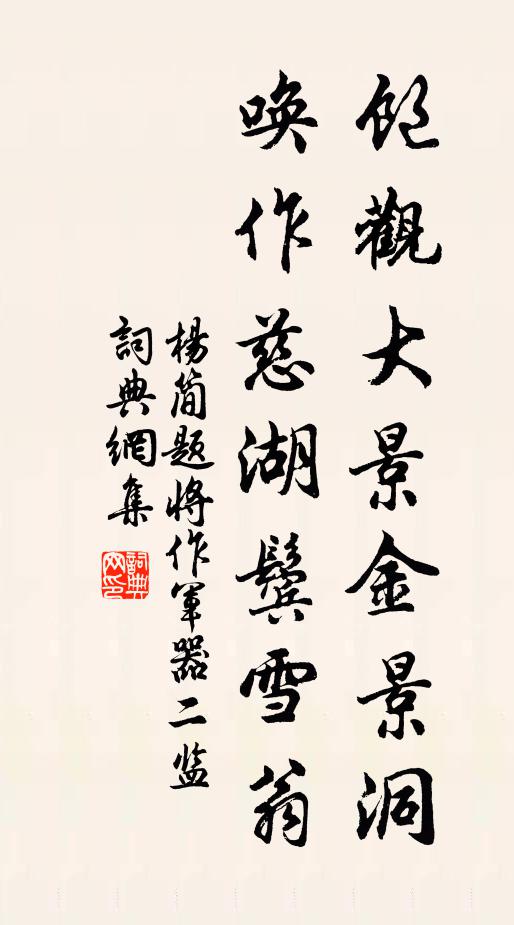 飽觀大景金景洞
喚作慈湖鬢雪翁
楊簡題將作軍器二监
詞典網集
詞典
网印